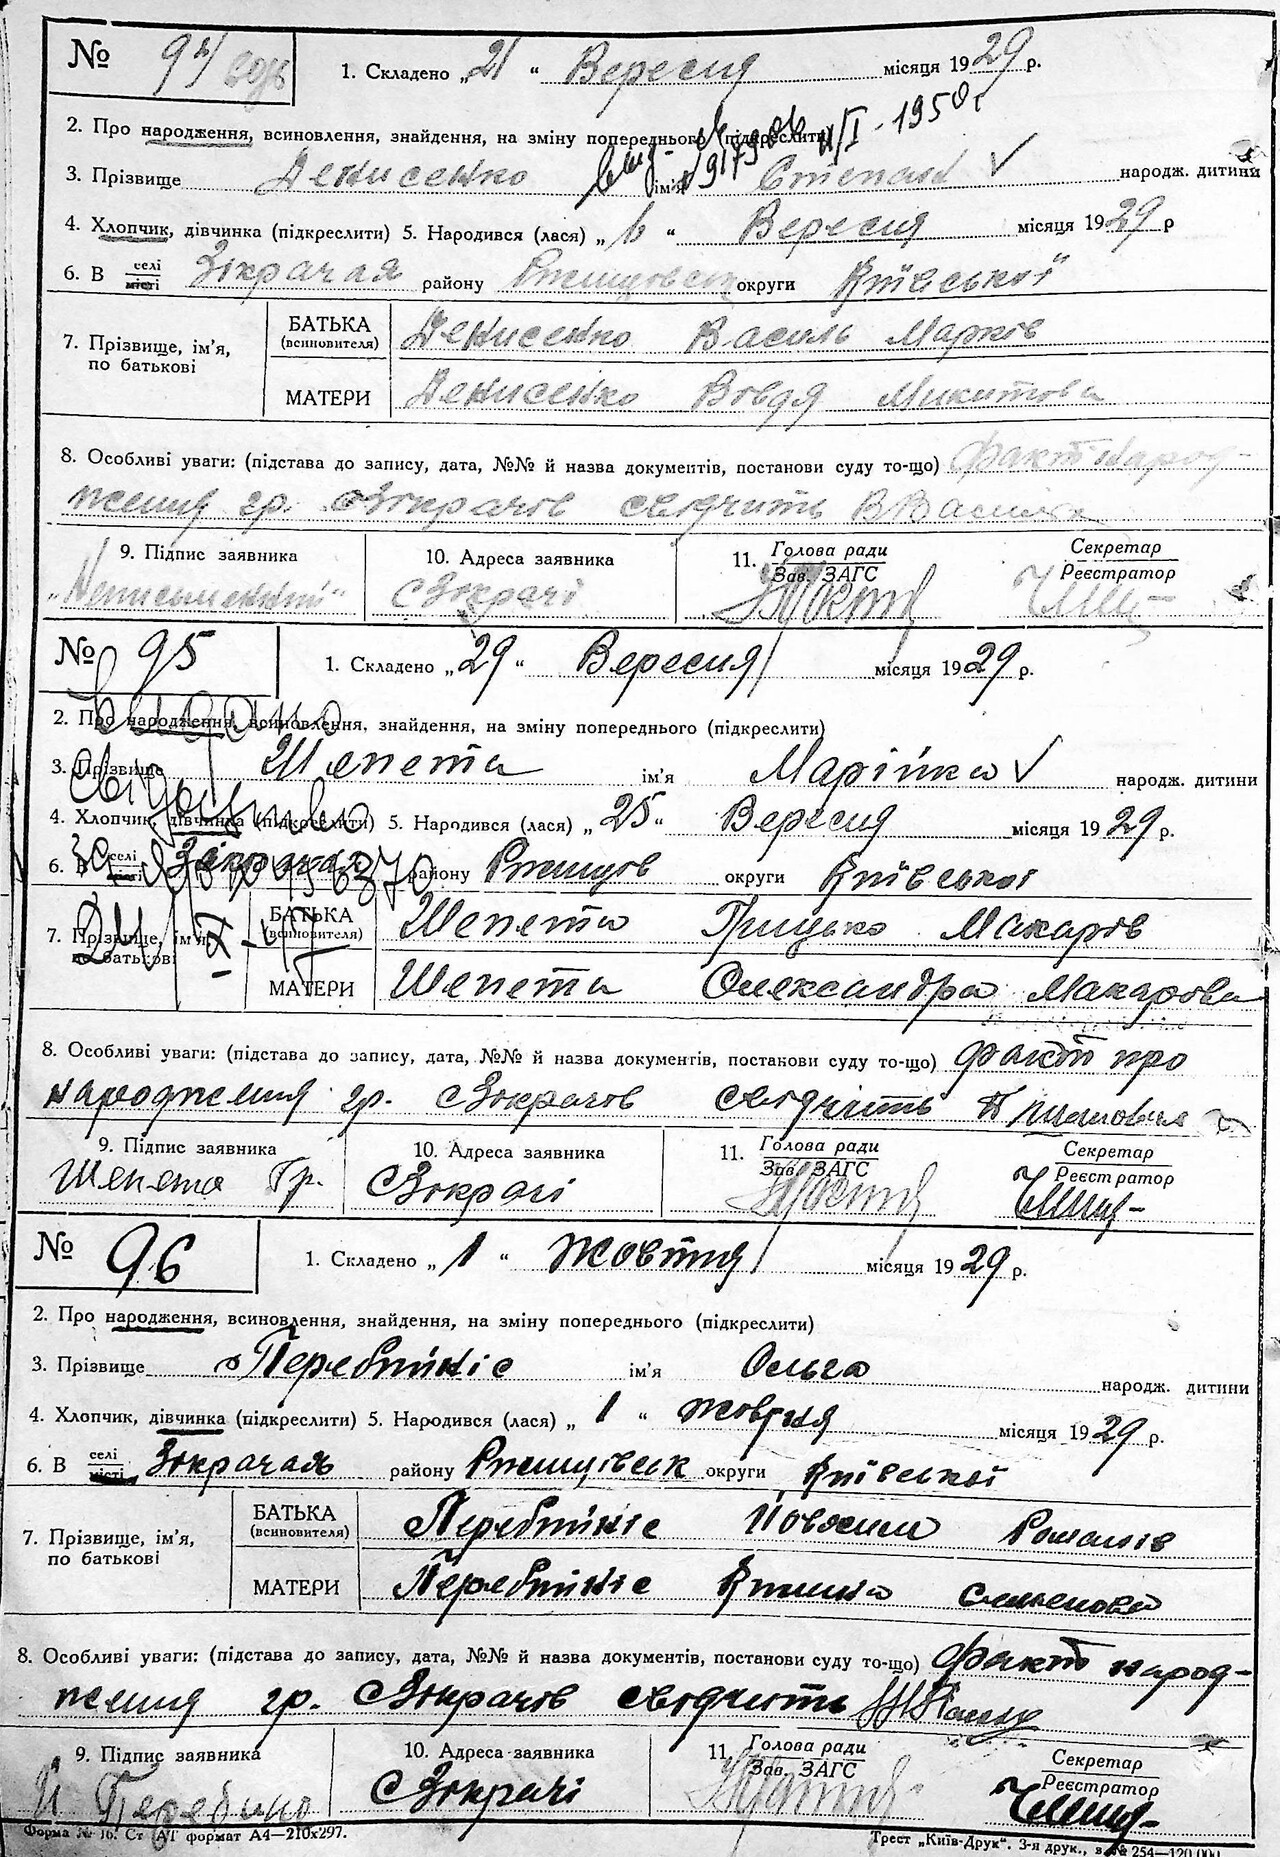 № 94
1. Складено „21“ Вересня місяця 1929 р.
2. Про народження, всиновлення, знайдення, на зміну попереднього (підкреслити)
II/I - 1950 г
3. Прізвище Денисенко ім'я Степан ✓ народж. дитини
4. Хлопчик, дівчинка (підкреслити) 5. Народився (лася) „ “ Вересня місяця 1929 р
6. В селі місті Зікрачая району округи Київської
7. Прізвище, ім'я, по батькові
БАТЬКА (всиновителя) Денисенко Василь Марків
МАТЕРИ Денисенко Вовдя Микитова
8. Особливі уваги: (підстава до запису, дата, №№ й назва документів, постанови суду то-що) Факт народ-
ження гр. Зікрачів свідчить
9. Підпис заявника 10. Адреса заявника 11. Голова ради Зав. ЗАГС Секретар Реєстратор
„Неписьменний“ с Зікрачі
№ 95
1. Складено „29“ Вересня місяця 1929 р.
видано
2. Про народження, всиновлення, знайдення, на зміну попереднього (підкреслити)
3. Прізвище Шепета ім'я Марійка ✓ народж. дитини
4. Хлопчик, дівчинка (підкреслити) 5. Народився (лася) „25“ Вересня місяця 1929 р.
6. В селі місті Зікрачая району Ржищов округи Київської
7. Прізвище, ім'я, по батькові
БАТЬКА (всиновителя) Шепета Грицько Макарів
МАТЕРИ Шепета Олександра Макарова
8. Особливі уваги: (підстава до запису, дата, №№ й назва документів, постакови суду то-що) факт про
народження гр. Зікрачов свідчить
9. Підпис заявника 10. Адреса заявника 11. Голова ради Зав. ЗАГС Секретар Реєстратор
Шепета Гр. с Зікрачі
№ 96
1. Складено „1“ Жовтня місяця 1929 р.
2. Про народження, всиновлення, знайдення, на зміну попереднього (підкреслити)
3. Прізвище Перебийніс ім'я Ольга народж. дитини
4. Хлопчик, дівчинка (підкреслити) 5. Народився (лася) „1“ жовтня місяця 1929 р.
6. В селі місті Зікрачая району Ржищівськ округи Київської
7. Прізвище, ім'я, по батькові
БАТЬКА (всиновителя) Перебийніс Йовхим Романів
МАТЕРИ Перебийніс Семенова
8. Особливі уваги: (підстава до запису, дата, №№ й назва документів, постанови суду то-що) факт народ-
ження гр. Зікрачів свідчить
9. Підпис заявника 10. Адреса заявника 11. Голова ради Зав. ЗАГС Секретар Реєстратор
с Зікрачі
Форма № 16. Ст АТ формат А4—210х297.
Трест „Київ-Друк“. 3-я друк., в. № 254—120.000